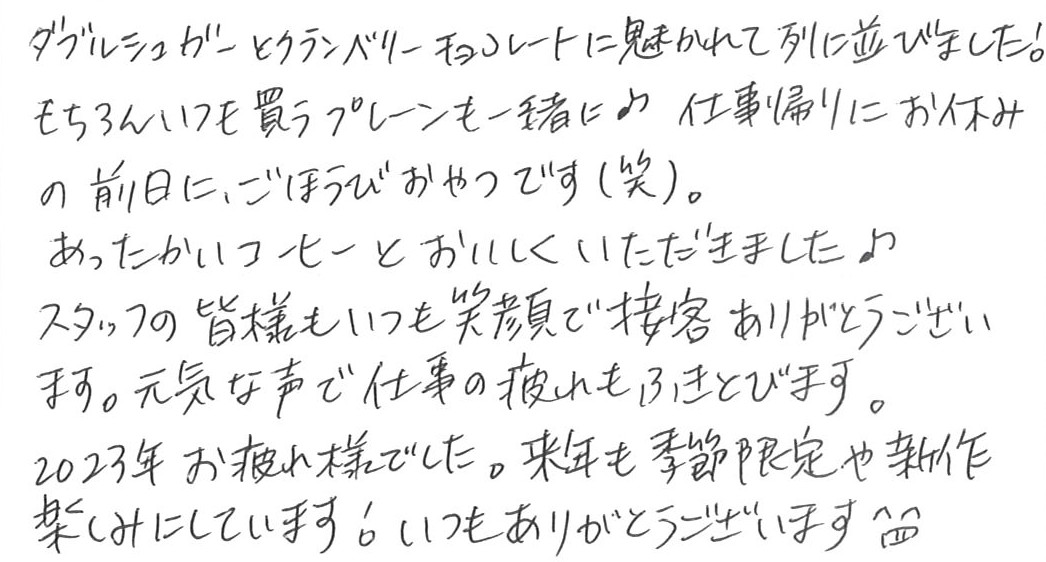 ダブルシュガーとクランベリーチョコレートに魅かれて列に並びました!
もちろんいつも買うプレーンも一緒に♪ 仕事帰りにお休み
の前日に、ごほうびおやつです(笑)。
あったかいコーヒーとおいしくいただきました♪
スタッフの皆様もいつも笑顔で接客ありがとうござい
ます。元気な声で仕事の疲れもふきとびます。
2023年お疲れ様でした。来年も季節限定や新作
楽しみにしています! いつもありがとうございます^^